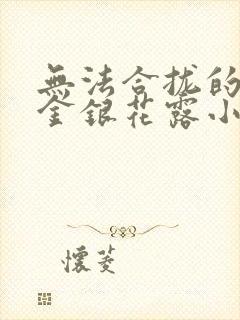 無法合拢的
金銀花露小
懷菱